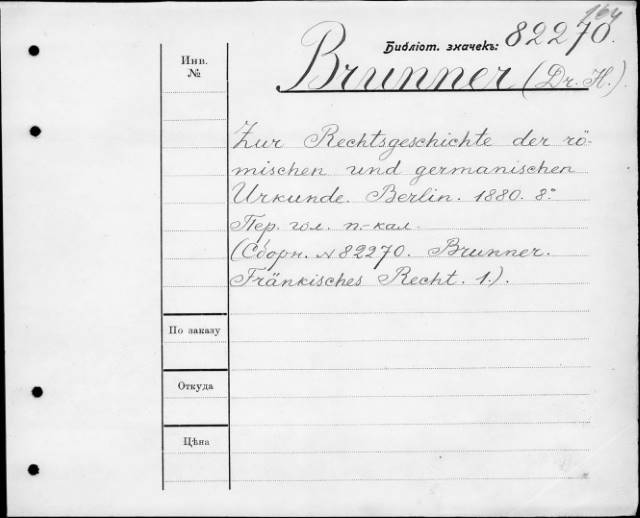 164
Библіот. значекъ: 82270.
Инв.
№
Brunner (Dr. H.).
Zur Rechtsgeschichte der rö-
mischen und germanischen
Urkunde. Berlin. 1880. 8°
Пер. гол. п.-кал.
(Сборн. № 82270. Brunner.
Fränkisches Recht. 1.).
По заказу
Откуда
Цѣна